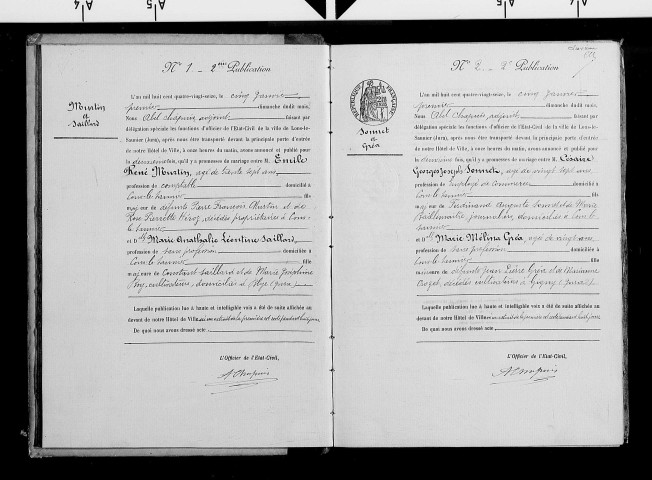 Nº 1 - 2me Publication
L'an mil huit cent quatre-vingt-seize, le cinq Janvier
premier dimanche dudit mois,
Nous Abel Chapuis adjoint faisant par
délégation spéciale les fonctions d'officier de l'État-Civil de la ville de Lons-le-
Saunier (Jura), après nous être transporté devant la principale porte d'entrée
de notre Hôtel de Ville, à onze heures du matin, avons annoncé et publié pour
la deuxième fois, qu'il y a promesses de mariage entre M. Emile
René Mustin, âgé de trente sept ans
profession de comptable domicilié à
Lons le Saunier fils
majeur de défunts Pierre François Mustin et de
Rose Pierrette décédés propriétaires à Lons
le Saunier
et Dlle Marie Anathalie Léontine Saillard,
profession de sans profession domiciliée à
Lons le Saunier fille
majeure de Constant Saillard et de Marie Joséphine
cultivateurs, domiciliés à (Jura)
Laquelle publication lue à haute et intelligible voix a été de suite affichée au
devant de notre Hôtel de Ville
De quoi nous avons dressé acte
L'Officier de l'État-Civil,
A Chapuis
Mustin
&
Saillard
Nº 2 - 2e Publication
L'an mil huit cent quatre-vingt-seize, le cinq Janvier
premier dimanche dudit mois,
Nous Abel Chapuis adjoint faisant par
délégation spéciale les fonctions d'officier de l'État-Civil de la ville de Lons-le-
Saunier (Jura), après nous être transporté devant la principale porte d'entrée
de notre Hôtel de Ville, à onze heures du matin, avons annoncé et publié pour
la deuxième fois, qu'il y a promesses de mariage entre M. Césaire
Georges Joseph Sonnet, âgé de vingt sept ans
profession de Employé de Commerce domicilié à
Lons le Saunier fils
majeur de Ferdinand Auguste Sonnet et de Marie
journaliers, domiciliés à Lons le
Saunier
et Dlle Marie Mélina Gréa, âgée de vingt ans
profession de sans profession domiciliée à
Lons le Saunier fille
mineure de défunts Jean Pierre Gréa et de Marianne
décédés cultivateurs à Gigny (Jura)
Laquelle publication lue à haute et intelligible voix a été de suite affichée au
devant de notre Hôtel de Ville
De quoi nous avons dressé acte
L'Officier de l'État-Civil,
A Chapuis
Sonnet
&
Gréa